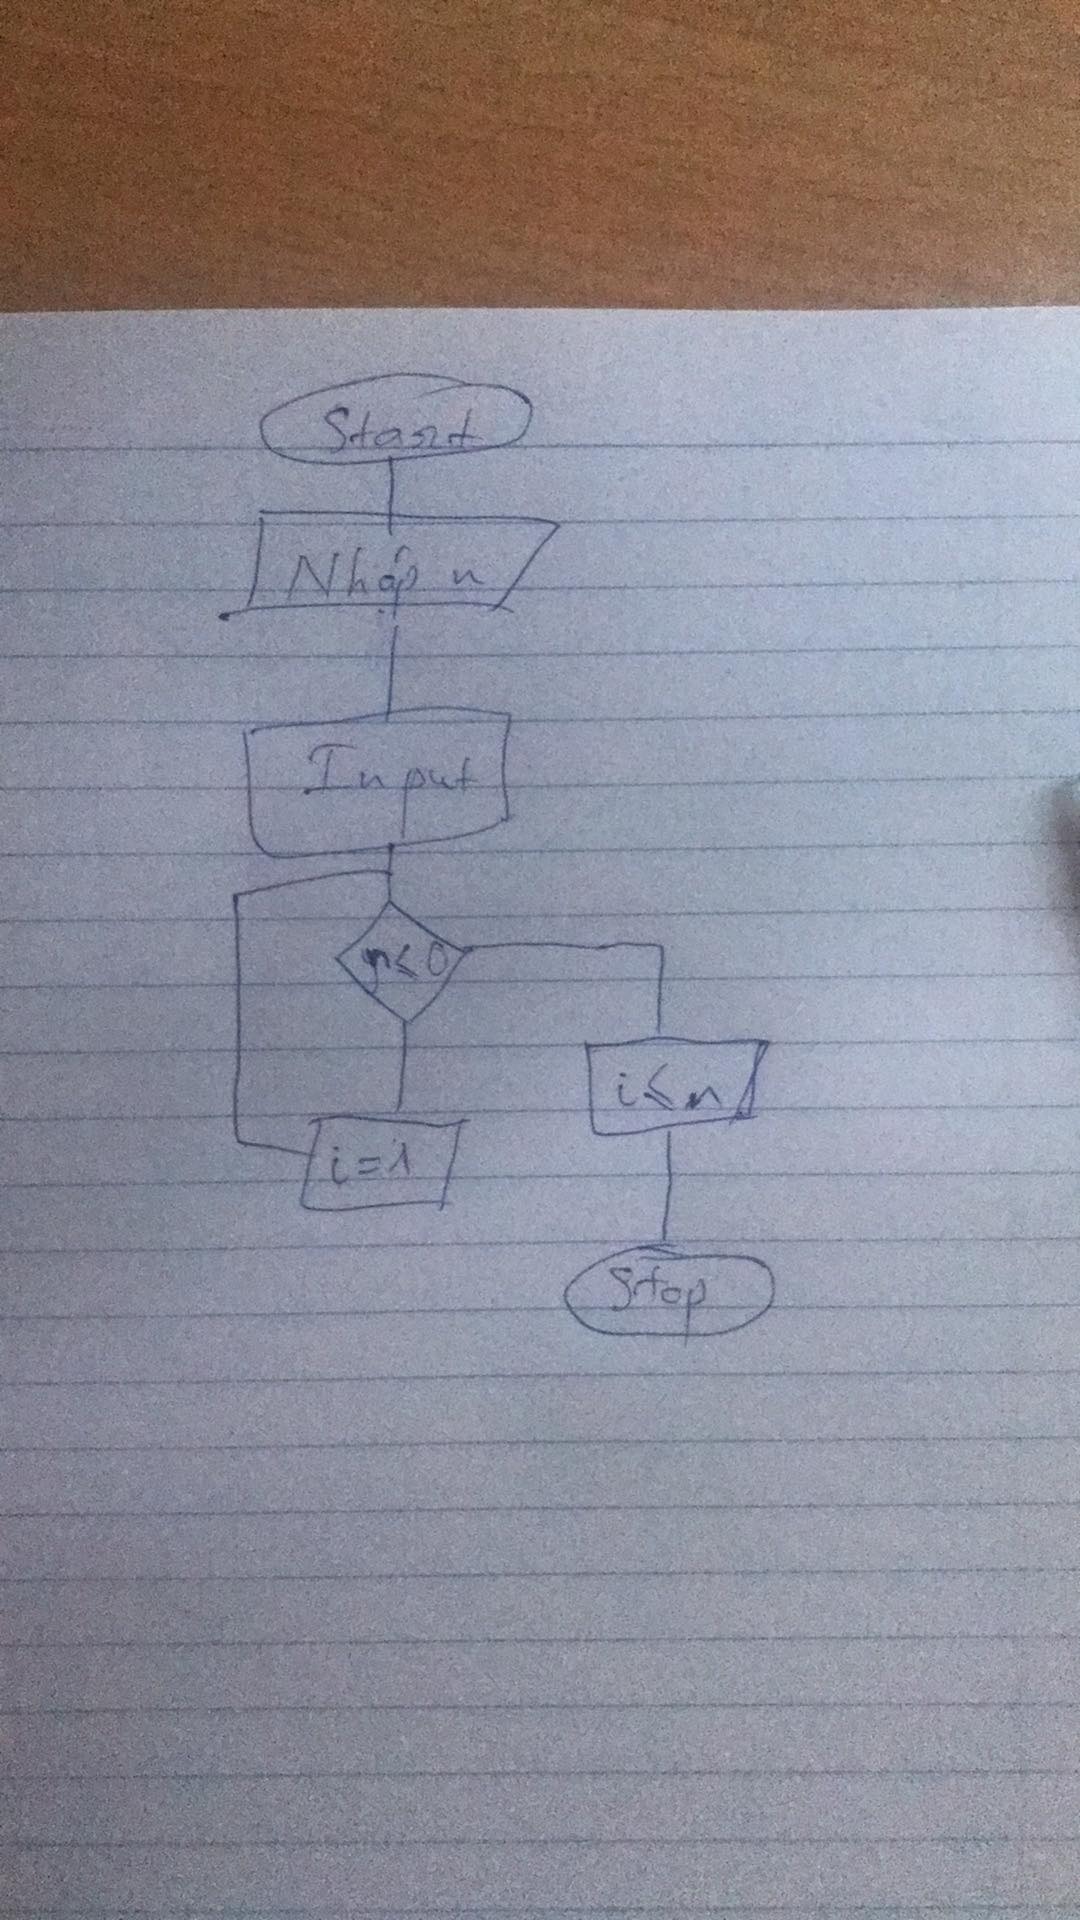 Start
Nhập n
Input
n≤0
i≤n
i=1
Stop